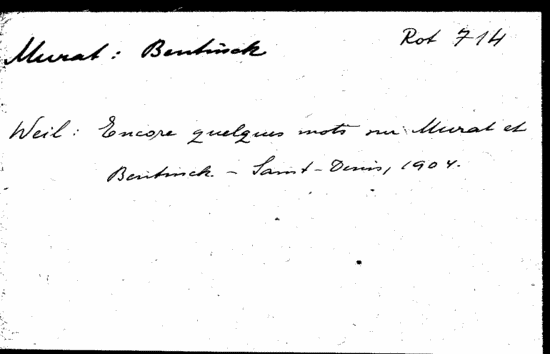 Murat: Bentinck
Rot 714
Weil: Encore quelques mots sur Murat et
Bentinck. - Saint-Denis, 1904.